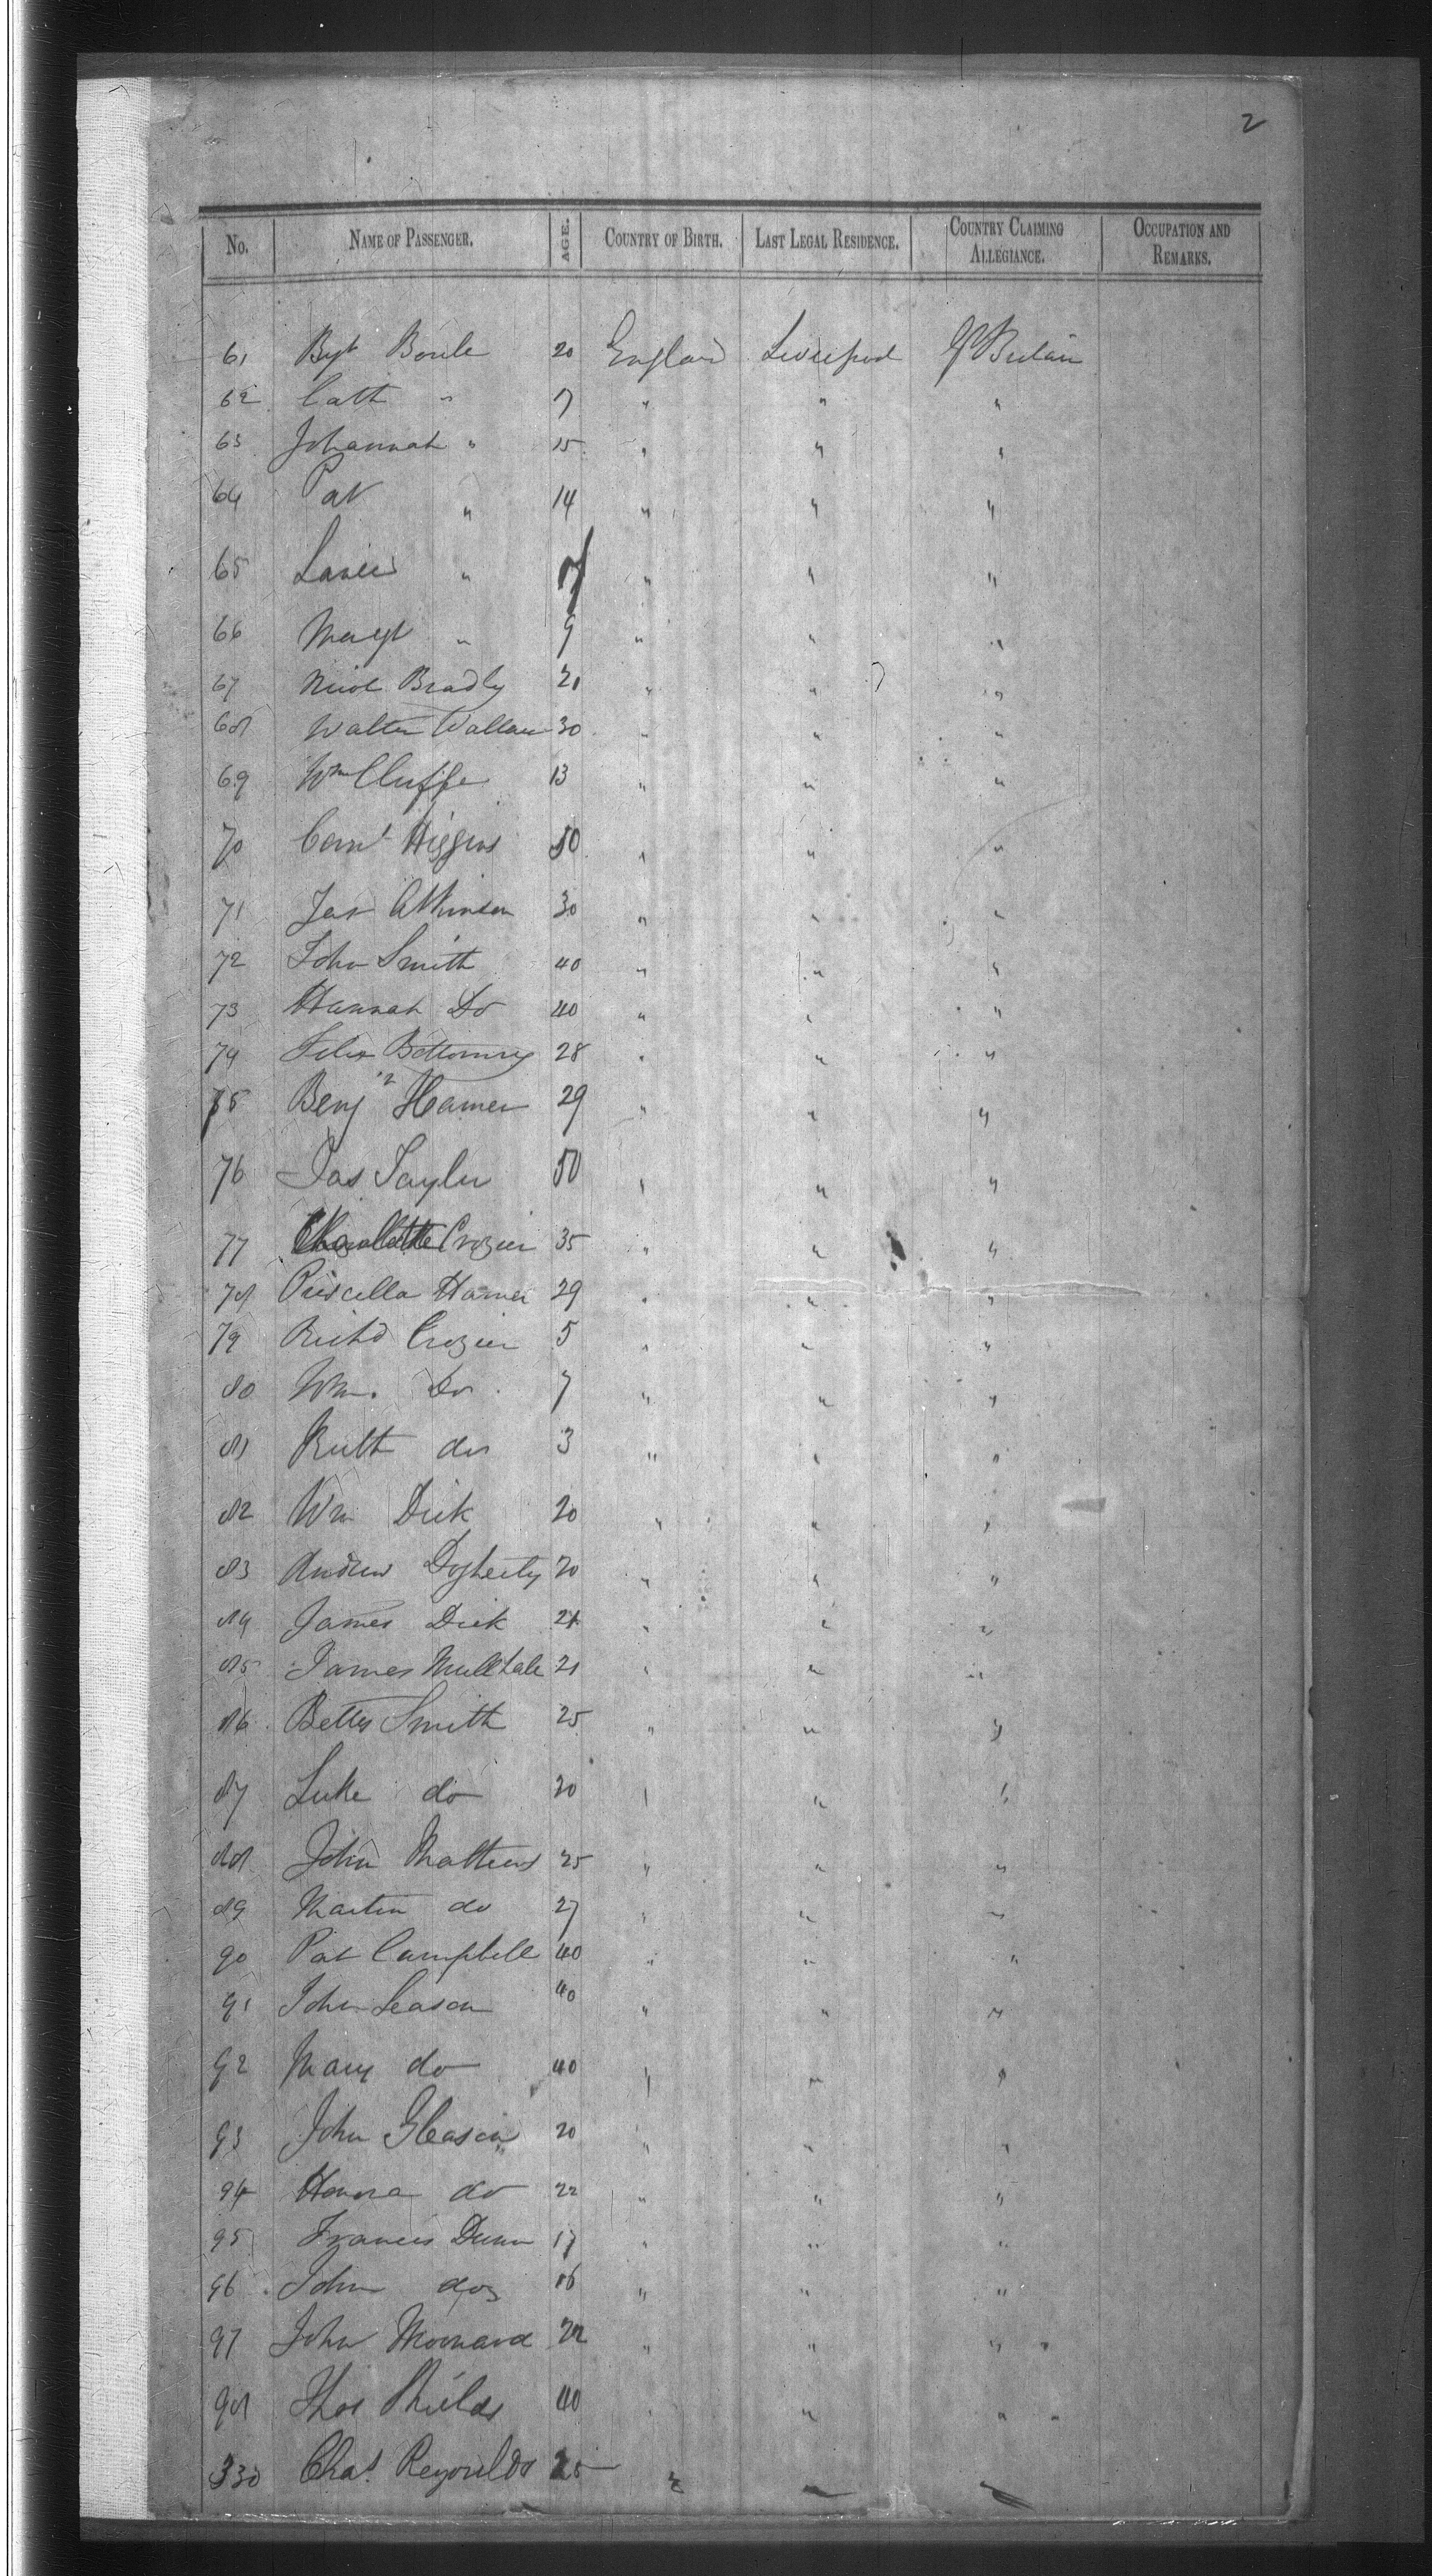 2
No. NAME OF PASSENGER. AGE. COUNTRY OF BIRTH. LAST LEGAL RESIDENCE. COUNTRY CLAIMING ALLEGIANCE. OCCUPATION AND REMARKS.
61 Bgt Boule 20 England Liverpool Gt Britain
62 Cath " 7 " " "
63 Johannah " 15 " " "
64 Pat " 14 " " "
65 " 7 " " "
66 Margt " 9 " " "
67 Bradly 21 " " "
68 Walter Wallace 30 " " "
69 Wm Cluffe 13 " " "
70 Corns Higgins 50 " " "
71 Jas Atkinson 30 " " "
72 John Smith 40 " " "
73 Hannah Do 40 " " "
74 Felix 28 " " "
75 Benjn Hamer 29 " " "
76 Jas Taylor 50 " " "
77 Charlotte Crozier 35 " " "
78 Priscilla Hamer 29 " " "
79 Richd Crozier 5 " " "
80 Wm. Do 7 " " "
81 Ruth do 3 " " "
82 Wm Dick 20 " " "
83 Andrew Dogherty 20 " " "
84 James Dick 21 " " "
85 James 21 " " "
86 Betty Smith 25 " " "
87 Luke do 20 " " "
88 John Mathews 25 " " "
89 Martin do 27 " " "
90 Pat Campbell 40 " " "
91 John Leason 40 " " "
92 Mary do 40 " " "
93 John Gleason 20 " " "
94 Honora do 22 " " "
95 Francis Dunn 17 " " "
96 John do 16 " " "
97 John 22 " " "
98 Thos Shields 40 " " "
330 Chas. Reynolds 25 " " "